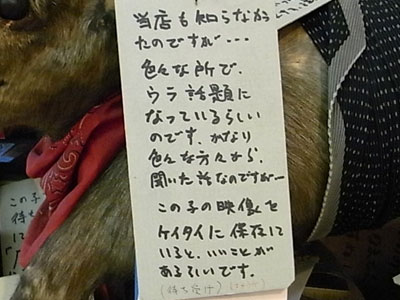 当店も知らなかっ
たのですが・・・
色々な所で、
ウラ話題に
なっているらしい
のです。かなり
色々な方々から、
聞いた話なのですが…
この子の映像を
ケイタイに保存して
いると、いいことが
あるらしいです。
(待ち受け)
この子
待ち